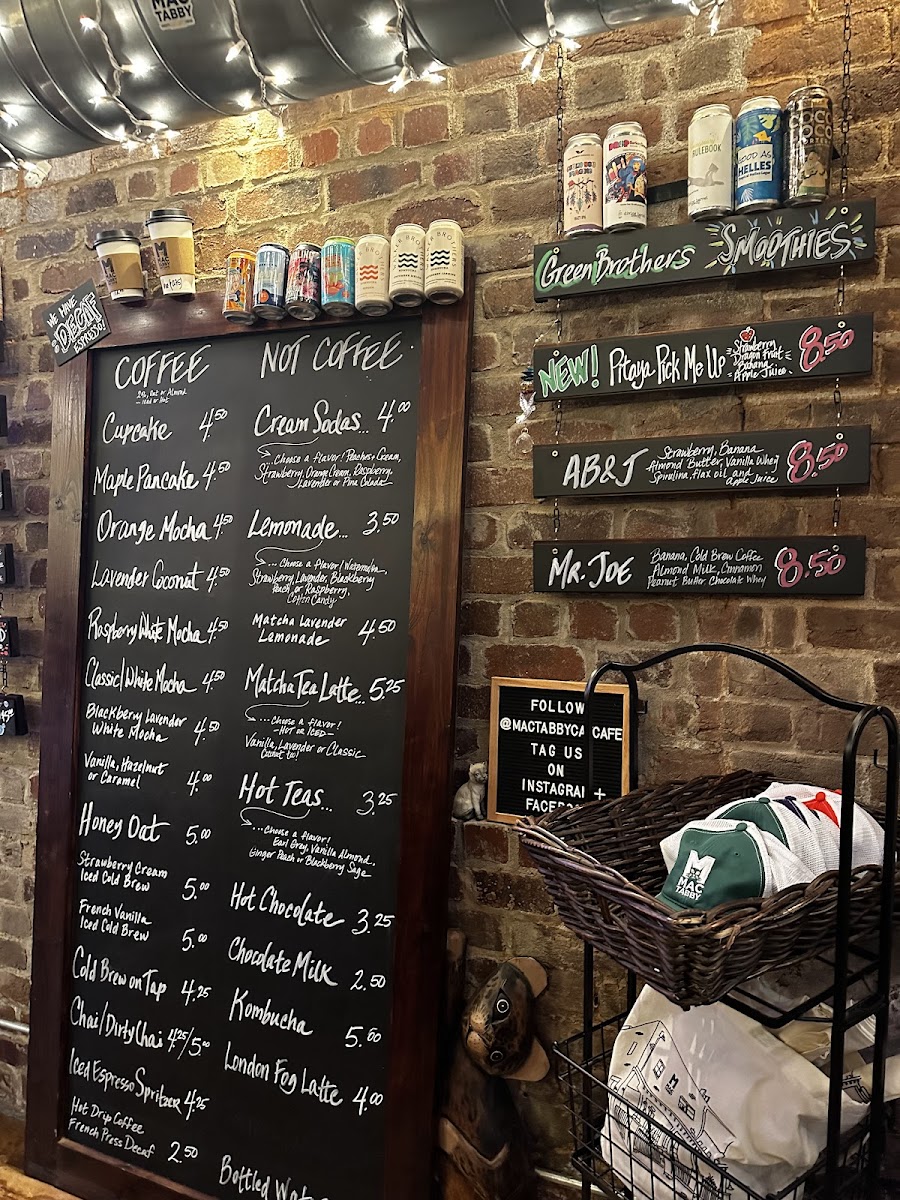 MAC
TABBY
WE HAVE
DECAF
ESPRESSO!
COFFEE
2%, Oat or Almond
- iced or Hot
Cupcake 4.50
Maple Pancake 4.50
Orange Mocha 4.50
Lavender Coconut 4.50
Raspberry White Mocha 4.50
Classic/White Mocha 4.50
Blackberry Lavender
White Mocha 4.50
Vanilla, Hazelnut
or Caramel 4.00
Honey Oat 5.00
Strawberry Cream
Iced Cold Brew 5.00
French Vanilla
Iced Cold Brew 5.00
Cold Brew on Tap 4.25
Chai/Dirty Chai 4.25/5.00
Iced Espresso Spritzer 4.25
Hot Drip Coffee
French Press Decaf 2.50
NOT COFFEE
Cream Sodas... 4.00
...Choose a flavor! Peaches+Cream,
Strawberry, Orange Cream, Raspberry,
Lavender or Pina Colada!
Lemonade... 3.50
...Choose a flavor! Watermelon,
Strawberry, Lavender, Blackberry
Peach or Raspberry,
Cotton Candy
Matcha Lavender
Lemonade 4.50
Matcha Tea Latte... 5.25
...Choose a flavor!
-HOT OR ICED-
Vanilla, Lavender or Classic
Coconut too!
Hot Teas... 3.25
...Choose a flavor!
Earl Grey, Vanilla Almond,
Ginger Peach or Blackberry Sage
Hot Chocolate 3.25
Chocolate Milk 2.50
Kombucha 5.50
London Fog Latte 4.00
Bottled
RULEBOOK
GOOD AS
HELLES
Green Brothers SMOOTHIES
NEW! Pitaya Pick Me Up Strawberry 8.50
Dragon Fruit
Banana
Apple Juice
AB&J Strawberry, Banana 8.50
Almond Butter, Vanilla Whey
Spirulina, flax oil and
Apple Juice
Mr. Joe Banana, Cold Brew Coffee 8.50
Almond Milk, Cinnamon
Peanut Butter Chocolate Whey
FOLLOW
@MACTABBYCA CAFE
TAG US
ON
INSTAGRA +
FACEBO
M
MAC
TABBY